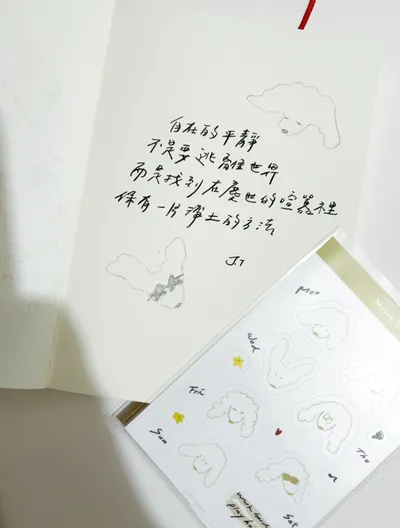 自在的平靜
不是要逃離世界
而是找到在塵世的喧囂裡
保有一片淨土的方法
JT
Mon
Wed
Fri
Thu
Sun
Sat